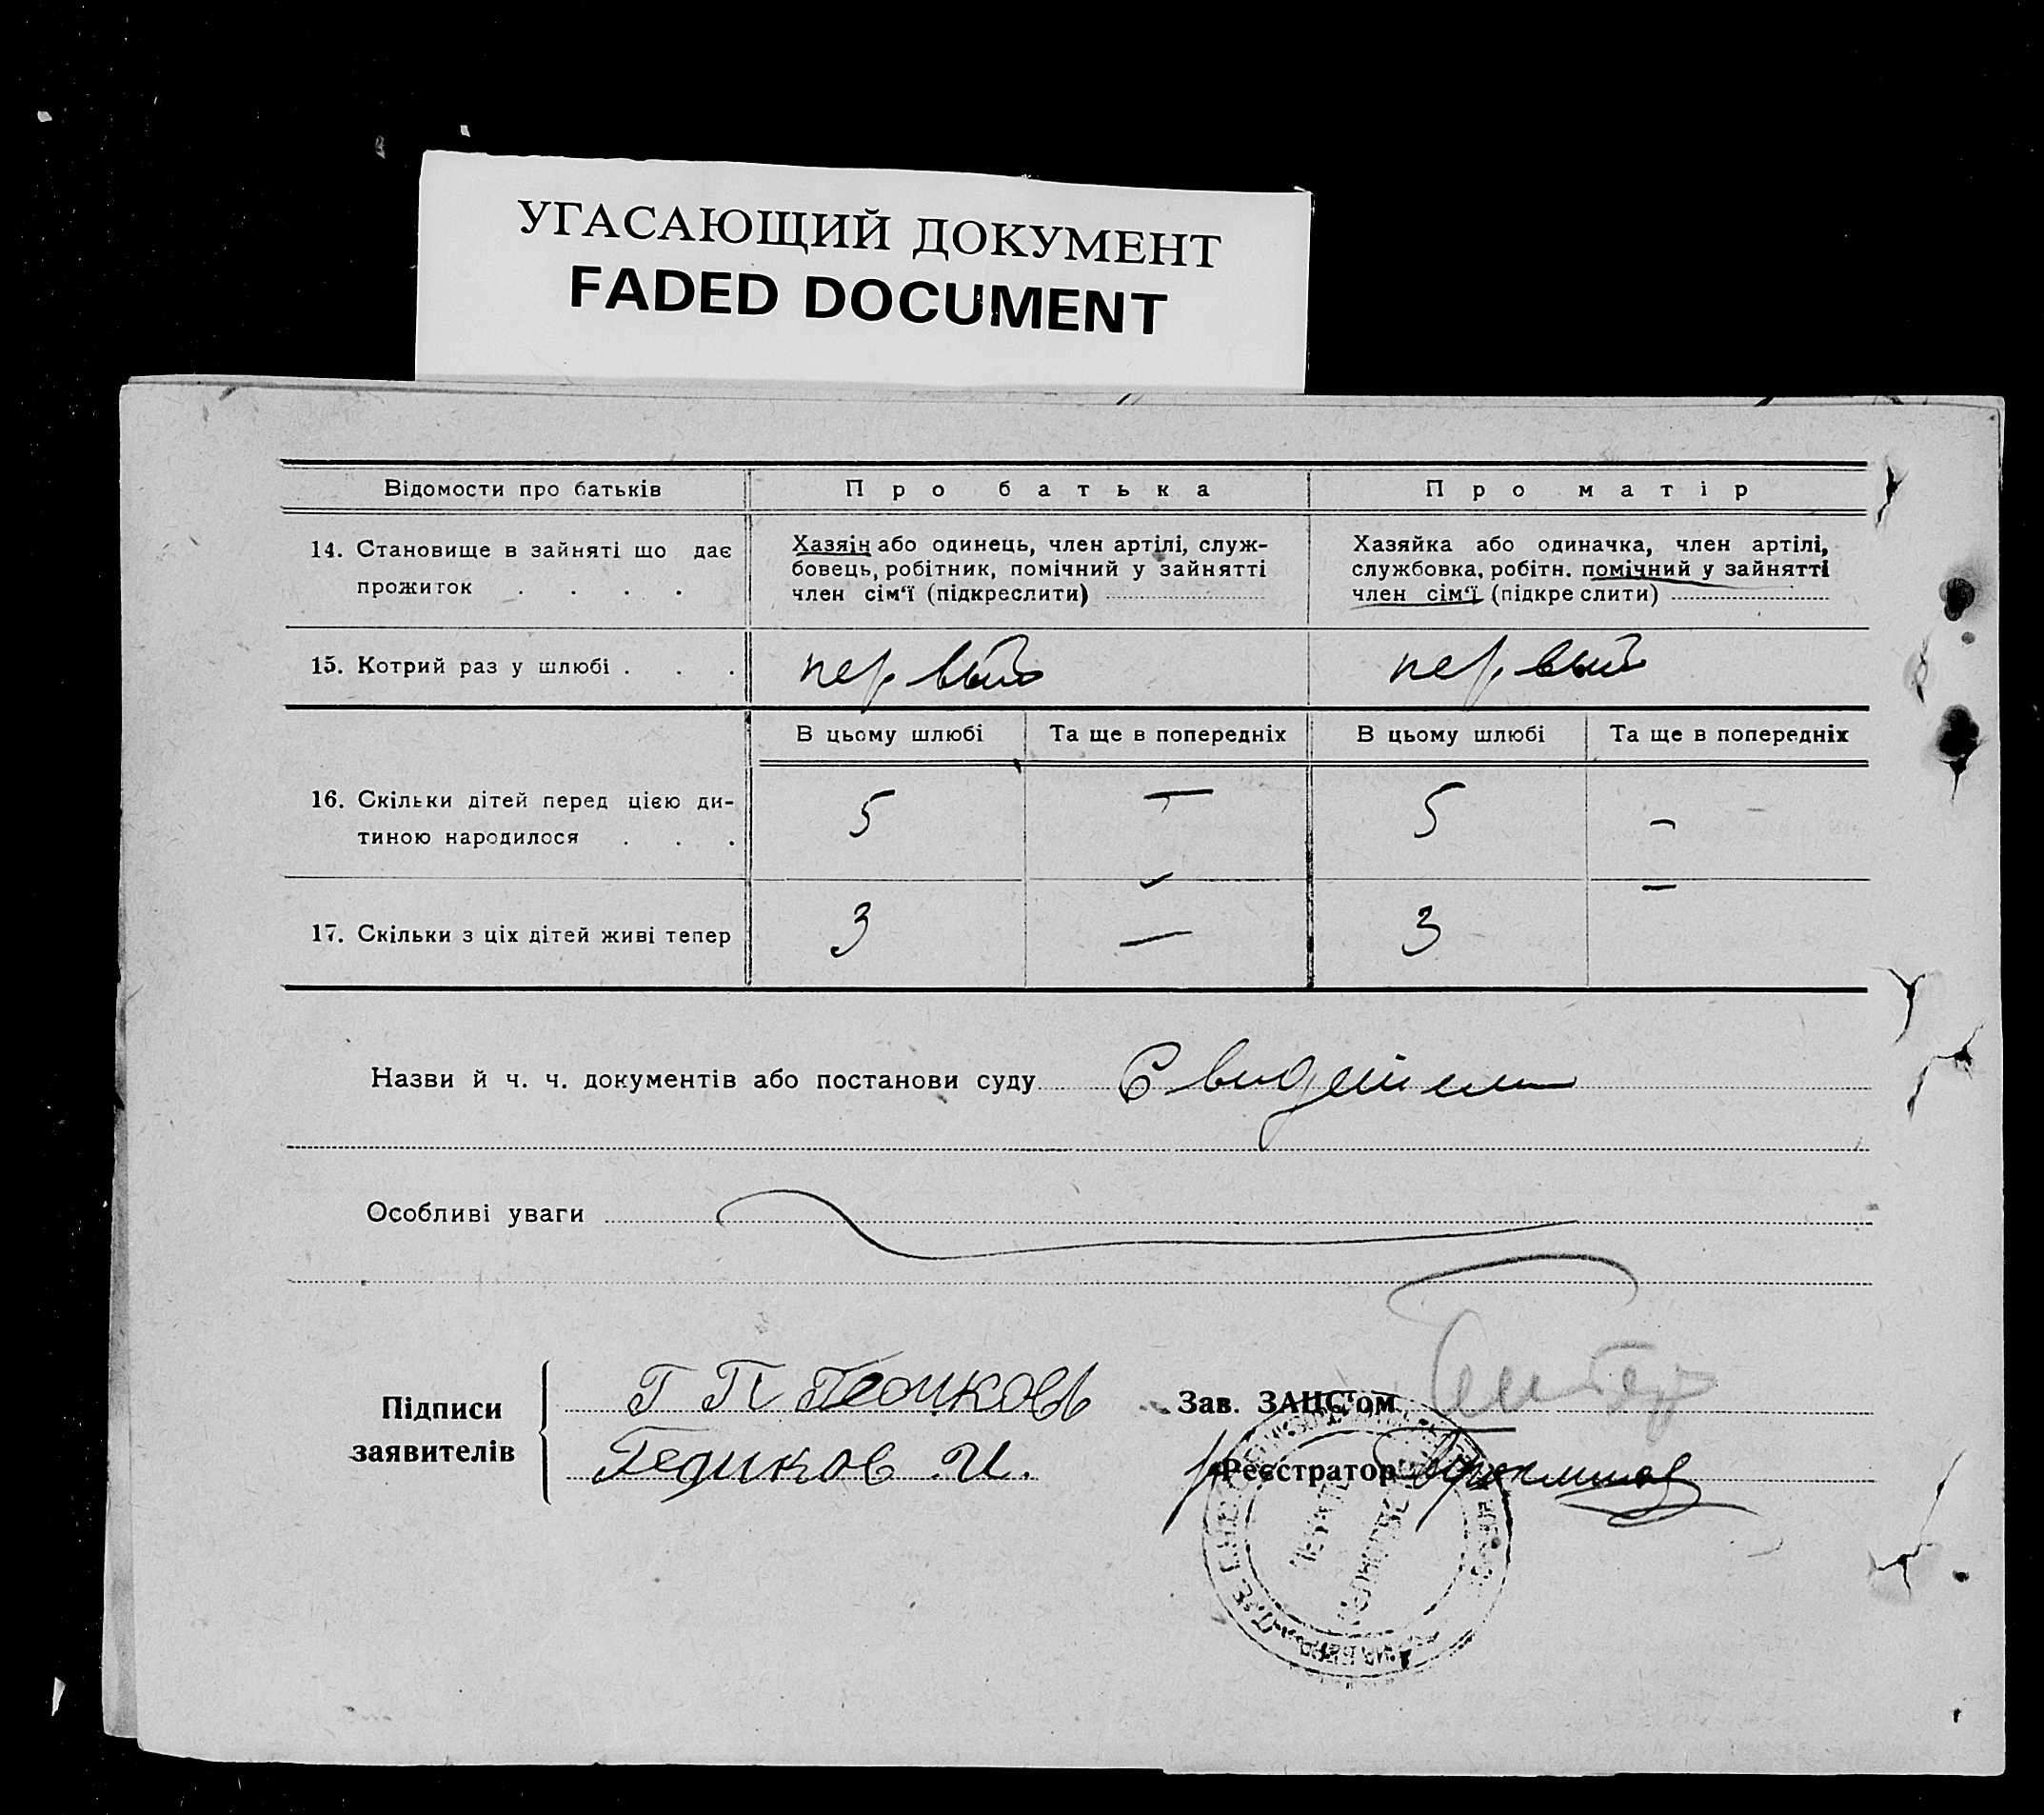 УГАСАЮЩИЙ ДОКУМЕНТ
FADED DOCUMENT
Відомости про батьків
Про батька
Про матір
14. Становище в зайняті що дає
прожиток . . . .
Хазяін або одинець, член артілі, служ-
бовець, робітник, помічний у зайнятті
член сім‘ї (підкреслити)
Хазяйка або одиначка, член артілі,
службовка, робітн. помічний у зайнятті
член сім‘ї (підкреслити)
15. Котрий раз у шлюбі . . .
первый
первый
В цьому шлюбі
Та ще в попередніх
В цьому шлюбі
Та ще в попередніх
16. Скільки дітей перед цією ди-
тиною народилося . . .
5
—
5
—
17. Скільки з ціх дітей живі тепер
3
—
3
—
Назви й ч. ч. документів або постанови суду
Особливі уваги
Підписи
заявителів
Г П
Гедиков И.
Зав. ЗАЦС‘ом
Реєстратор